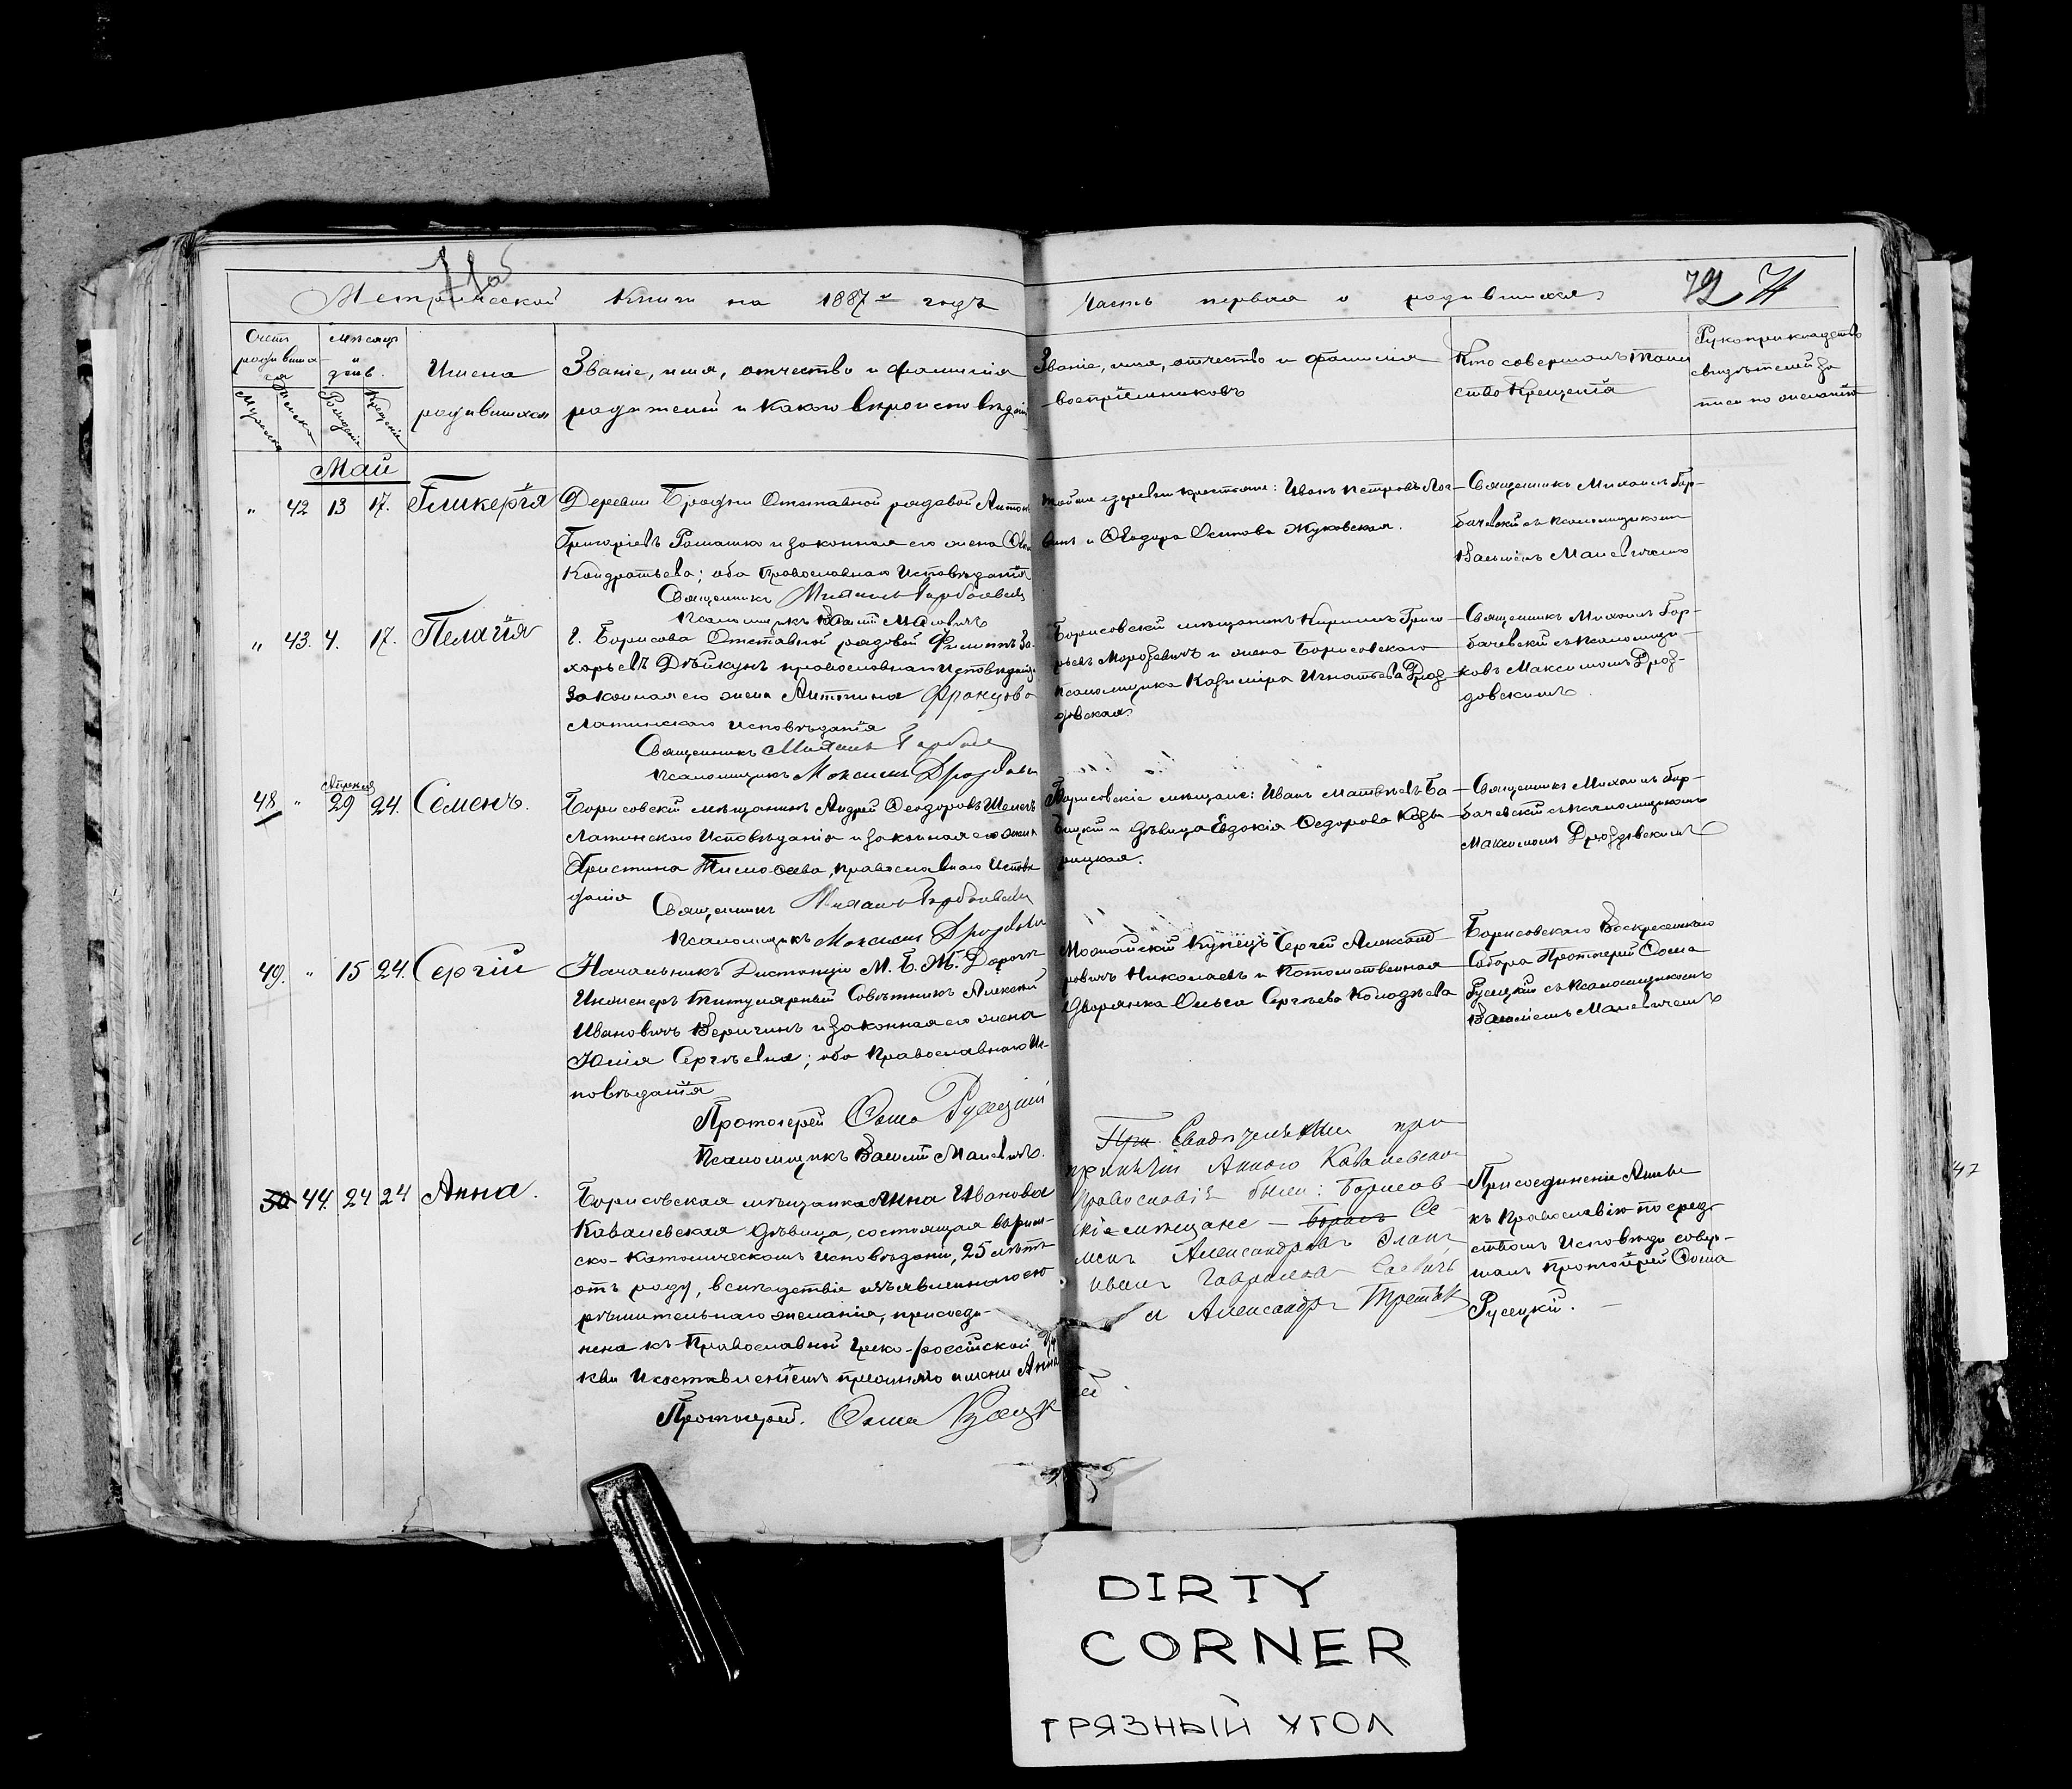 71об
72 71
Метрической Книги на 1887й годъ
Часть первая о родившихся
Счетъ родивших-ся
Мужеска
Женска
Мѣсяцъ и день.
Рожденіе
Крещеніе
Имена
родившихся
Званіе, имя, отчество и фамилія
родителей и какого вѣроисповѣданія
Званіе, имя, отчество и фамилія
воспріемниковъ
Кто совершалъ таин
ство Крещенія
Рукоприкладство
свидѣтелей за
писи по желанію
Май
" 42 13 17. Гликерія
Деревни Бродни Отставной рядовой Антонъ
Григорьевъ Ромашко и законная его жена
Кондратьева; оба Православнаго Исповѣданія
Священникъ Михаилъ Горбачевскій
Псаломщикъ Василій Малевичъ
той же деревни крестьяне: Иванъ Петровъ Лог-
винъ и Ѳеодора Осипова Жуковская.
Священникъ Михаилъ Гор-
бачевскій съ псаломщикомъ
Василіемъ Малевичемъ
" 43. 4. 17. Пелагія
г. Борисова Отставной рядовой Филиппъ За-
харьевъ Дѣйкунъ православнаго Исповѣданія
Законная его жена Антонина Францова
Латинскаго Исповѣданія
Священникъ Михаилъ Горбачев
Псаломщикъ Максимъ Дроздовскі
Борисовскій мѣщанинъ Кириллъ Григо-
рьевъ Морозевичъ и жена Борисовскаго
Псаломщика Казиміра Игнатьева Дроз-
довская.
Священникъ Михаилъ Гор-
бачевскій съ псаломщи-
комъ Максимомъ Дроз-
довскимъ.
48. " Апрѣля 29 24. Семенъ.
Борисовскій мѣщанинъ Андрей Ѳеодоровъ
Латинскаго Исповѣданія и законная его жена
Христина Тимоѳеева, православнаго Исповѣ
данія
Священникъ Михаилъ Горбачевскій
Псаломщикъ Максимъ Дроздовскі
Борисовскіе мѣщане: Иванъ Матвѣевъ Ба
бицкій и дѣвица Евдокія Ѳедорова
рицкая.
Священникъ Михаилъ Гор-
бачевскій съ псаломщикомъ
Максимомъ Дроздовскимъ
49. " 15 24. Сергій
Начальникъ Дистанціи М. Б. Ж. Дороги
Инженеръ Титулярный Совѣтникъ Алексѣй
Ивановичъ Веригинъ и законная его жена
Юлія Сергѣевна; оба Православнаго Ис-
повѣданія
Протоіерей Ѳома Русецкій
Псаломщикъ Василій Малевичъ.
Можайскій Купецъ Сергѣй Александ-
ровичъ Николаевъ и Потомственная
Дворянка Ольга Сергѣева Колодѣева
Борисовскаго Воскресенскаго
Собора Протоіерей Ѳома
Русецкій съ Псаломщикомъ
Василіемъ Малевичемъ
50 44. 24 24 Анна.
Борисовская мѣщанка Анна Иванова
Ковалевская дѣвица, состоящая въ Рим-
ско-Католическомъ Исповѣданіи, 25 лѣтъ
отъ роду, вслѣдствіе изъявленнаго ею
рѣшительнаго желанія, присоеди-
нена къ Православной Греко-россійской Цер
кви и съ оставленіемъ прежняго имени Анна
Протоіерей. Ѳома Русецкій
При Свидѣтельми при
принятіи Анною Ковалевскою
Православія были: Борисов-
скіе мѣщане — Се-
менъ Александровъ
Иванъ Гаврилова
и Александръ Третьяк
Присоединеніе Анны
къ Православію посред-
ствомъ Исповѣди совер-
шалъ Протоіерей Ѳома
Русецкій. —
47
DIRTY
CORNER
ГРЯЗНЫЙ УГОЛ